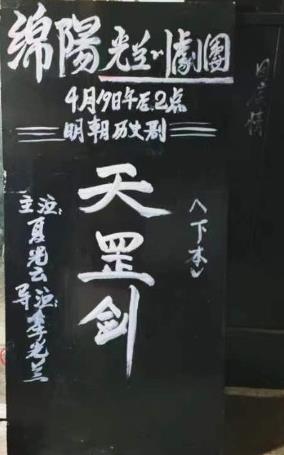 綿陽光兰川劇團
4月19日午后2点
明朝历史剧
天罡剑
〈下本〉
主演:夏光云
导演:李光兰